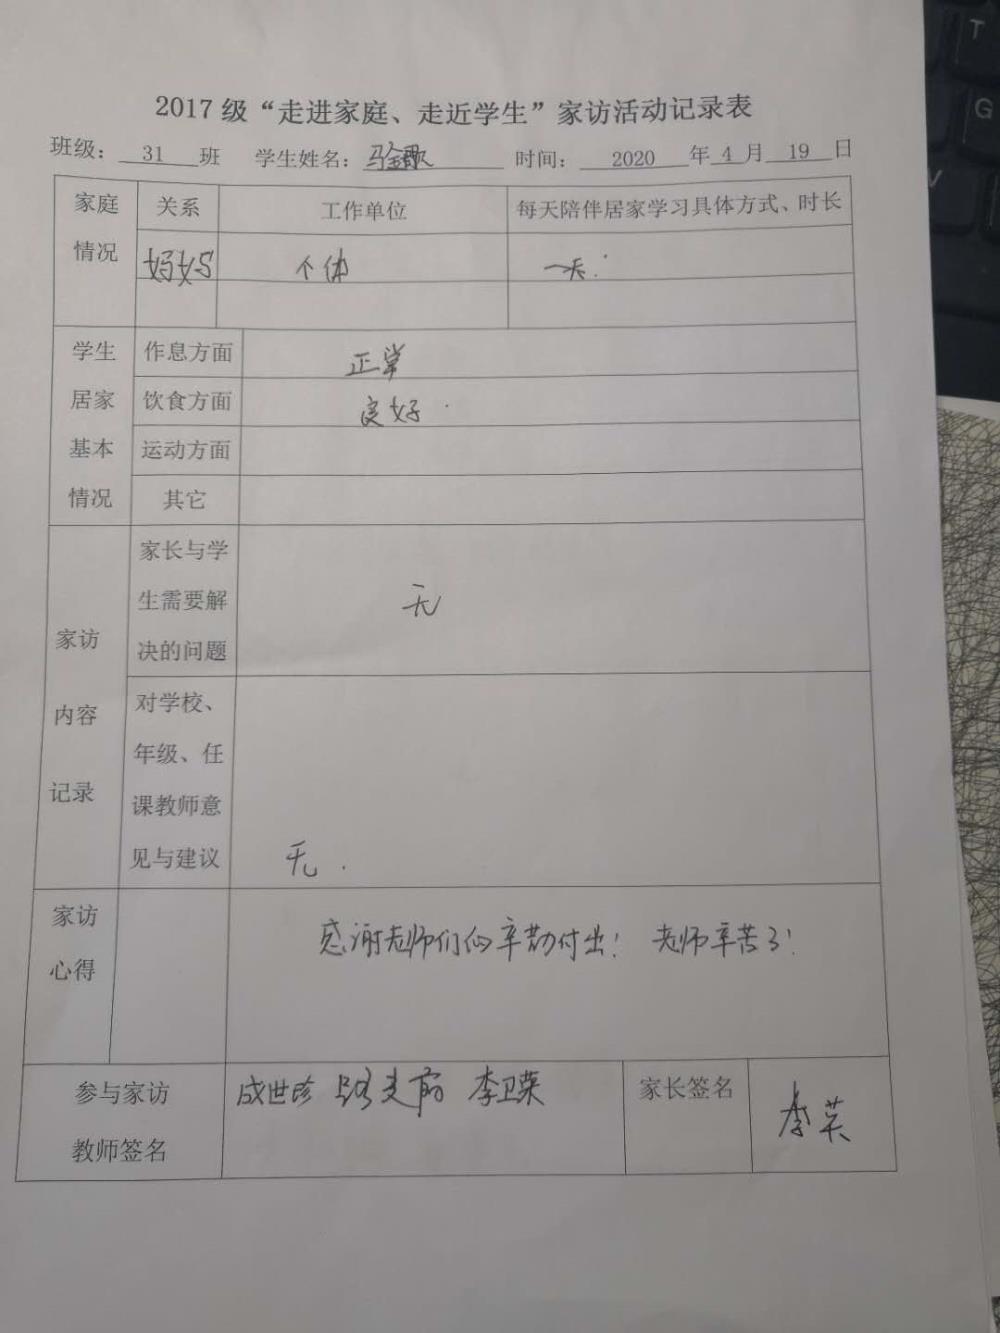 2017 级“走进家庭、走近学生”家访活动记录表
班级： 31 班 学生姓名： 马 歌 时间： 2020 年 4 月 19 日
家庭情况 关系 工作单位 每天陪伴居家学习具体方式、时长
妈妈 个体 一天.
学生居家基本情况
作息方面 正常
饮食方面 良好.
运动方面
其它
家访内容记录
家长与学
生需要解
决的问题
无
对学校、
年级、任
课教师意
见与建议
无.
家访
心得
感谢老师们的辛勤付出！ 老师辛苦了！
参与家访
教师签名
成世珍 李卫荣
家长签名
李英
T
G
V